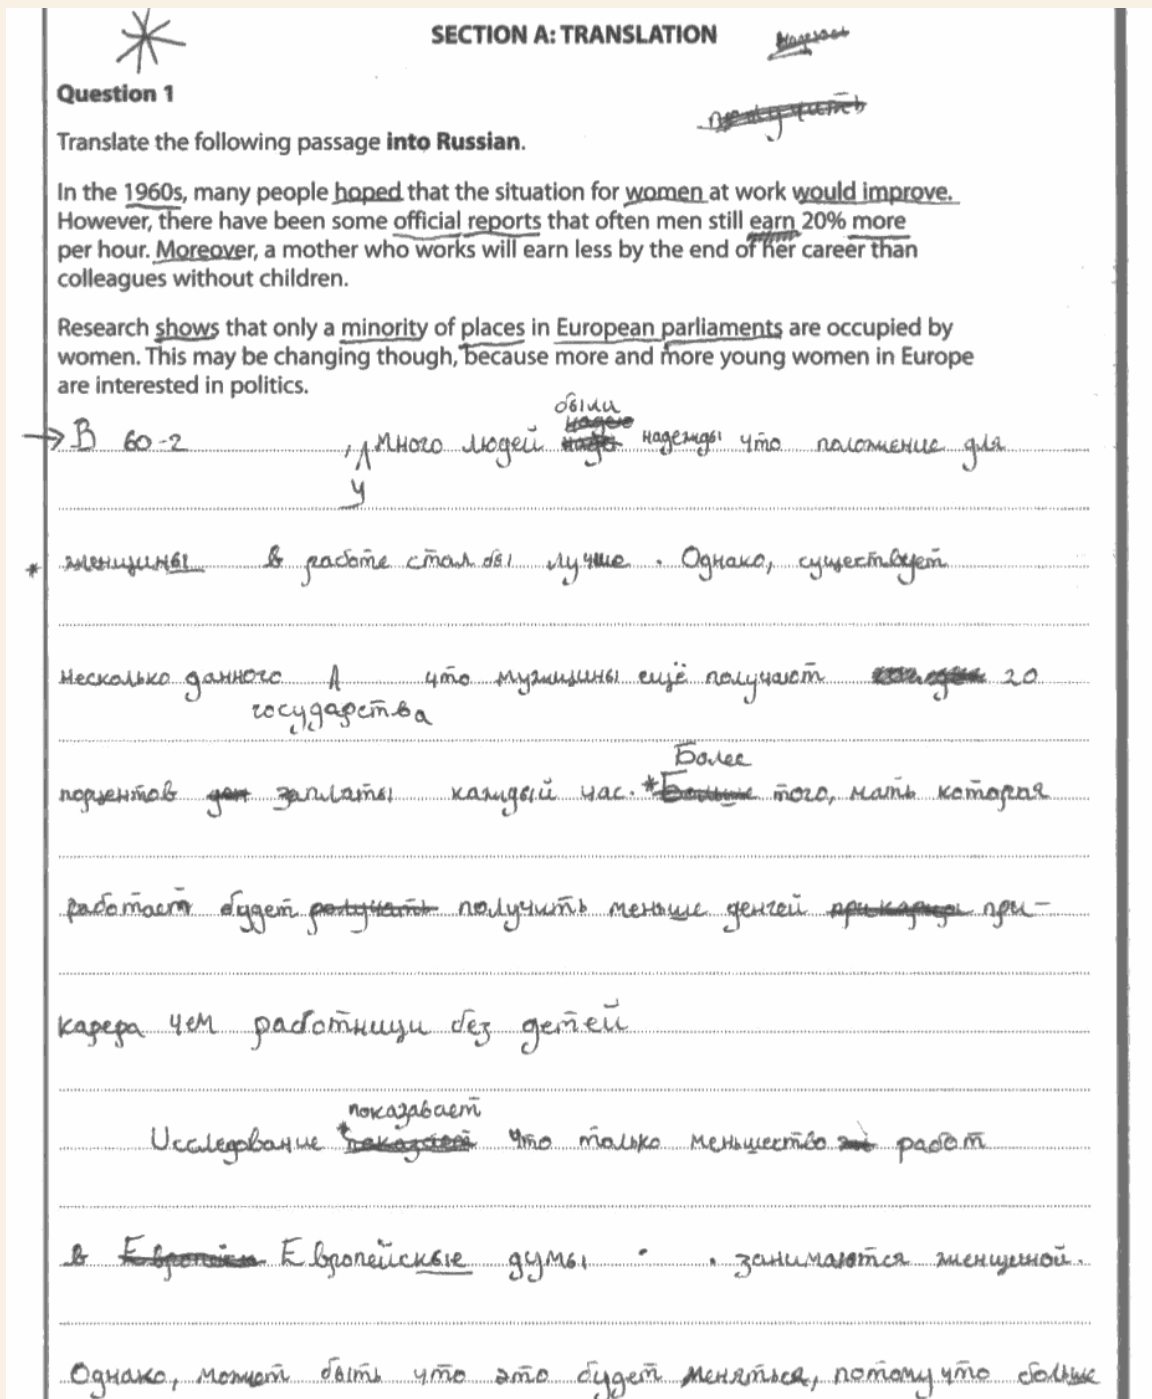 SECTION A: TRANSLATION
Question 1
Translate the following passage into Russian.
In the 1960s, many people hoped that the situation for women at work would improve.
However, there have been some official reports that often men still earn 20% more
per hour. Moreover, a mother who works will earn less by the end of her career than
colleagues without children.
Research shows that only a minority of places in European parliaments are occupied by
women. This may be changing though, because more and more young women in Europe
are interested in politics.
были
В 60-2 , много людей надежды что положение для
у
женщины в работе стал бы лучше . Однако, существует
несколько данного что мужщины ещё получают 20
государства
Более
порцентов заплаты каждый час. * того, мать которая
работает будет получить меньше денгей при-
карера чем работници без детей
показавает
Исследование что только меньшество работ
в Европейские думы . занимаются женщеной.
Однако, может быть что это будет меняться, потому что больше